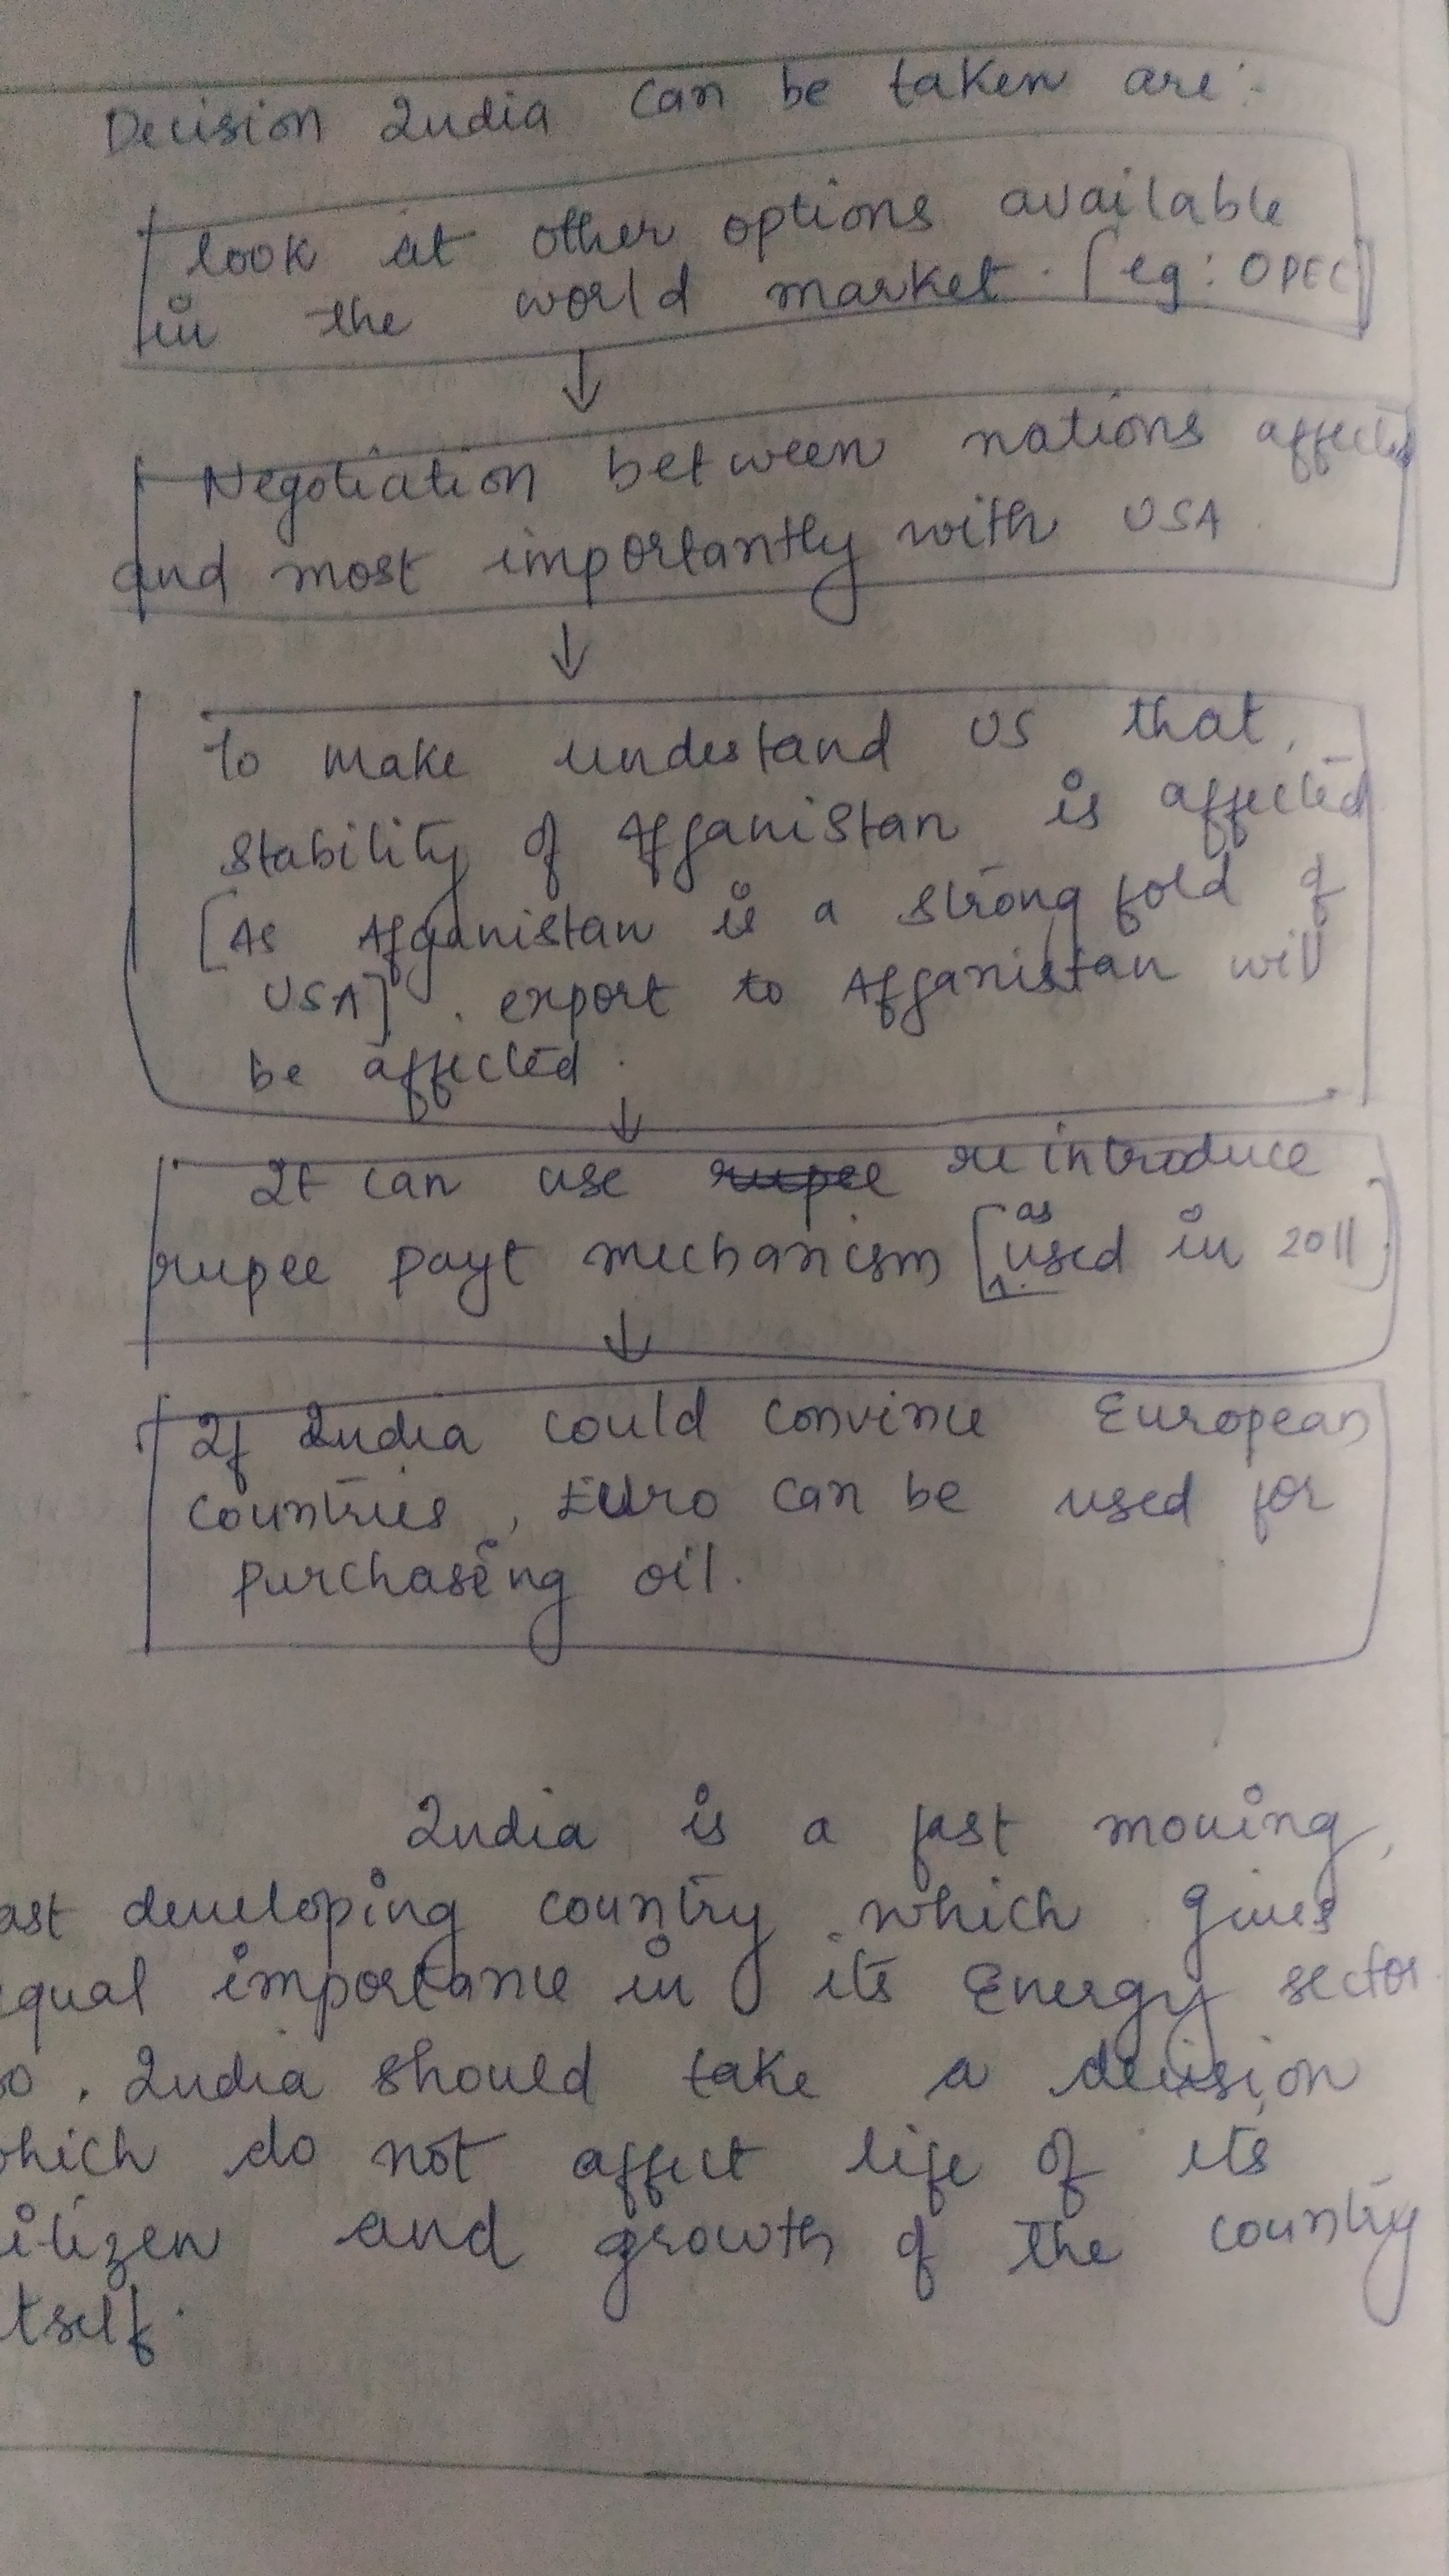 Decision India can be taken are:-
look at other options available
in the world market. [eg: OPEC]
Negotiation between nations affected
and most importantly with USA.
To make undestand US that,
stability of Afganistan is affected
[As Afganistan is a strong fold of
USA]. export to Afganistan will
be affected.
It can use rupee reintroduce
as
rupee payt mechanism [used in 2011]
If India could convince European
countries, Euro can be used for
purchaseing oil.
India is a fast moving,
ast developing country which gives
equal importance in its Energy sector.
so, India should take a decision
which do not affect life of its
citizen and growth of the country
itself.